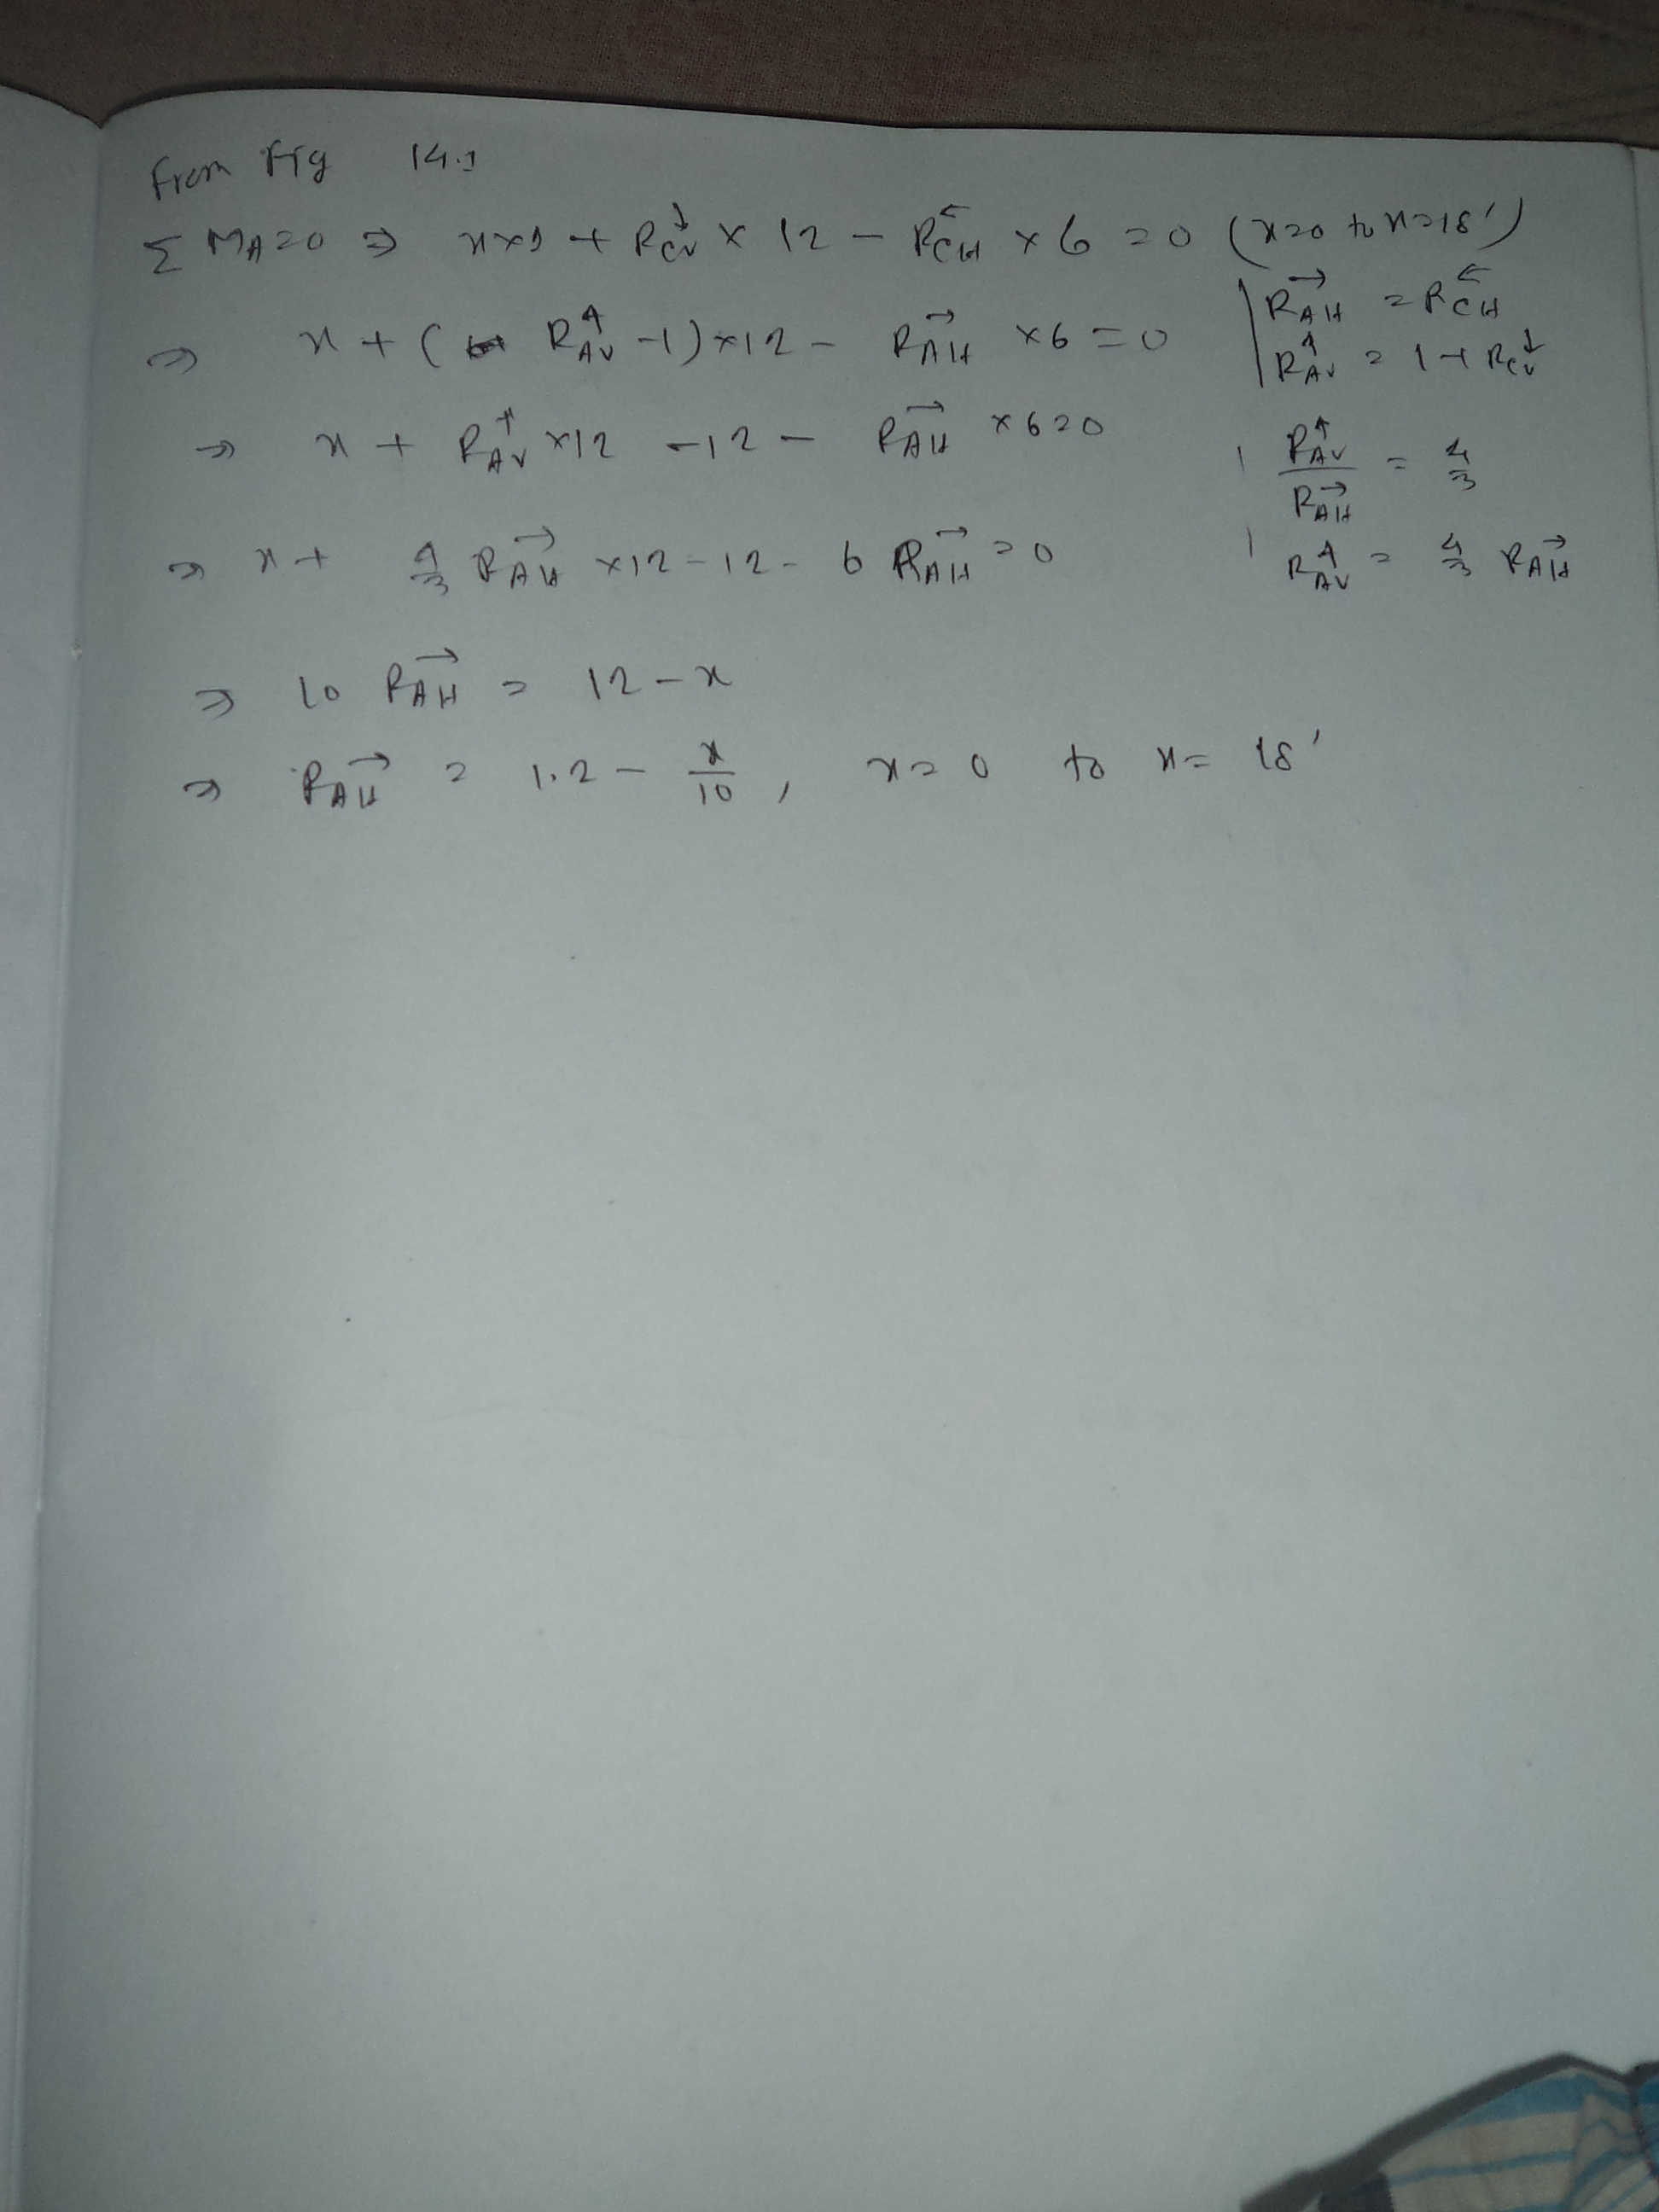 From Fig 14.1
Σ M_A = 0 ⇒ x×1 + R_CV↓ × 12 − R_CH← × 6 = 0 (x=0 to x=18')
⇒ x + (R_AV↑ −1)×12 − R_AH→ ×6 = 0 | R_AH→ = R_CH←
| R_AV↑ = 1 + R_CV↓
⇒ x + R_AV↑ ×12 −12 − R_AH→ ×6=0 | R_AV↑/R_AH→ = 4/3
⇒ x + 4/3 R_AH→ ×12 − 12 − 6 R_AH→ = 0 | R_AV↑ = 4/3 R_AH→
⇒ 10 R_AH→ = 12 − x
⇒ R_AH→ = 1.2 − x/10 , x = 0 to x = 18'